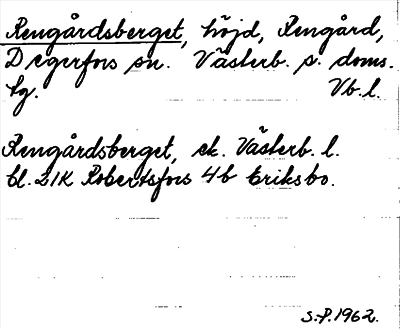 Rengårdsberget, höjd, Rengård,
Degerfors sn. Västerb. s. doms.
tg. Vb.l.
Rengårdsberget, ek. Västerb. l.
bl. 21K Robertsfors 4b Eriksbo.
S.P. 1962.